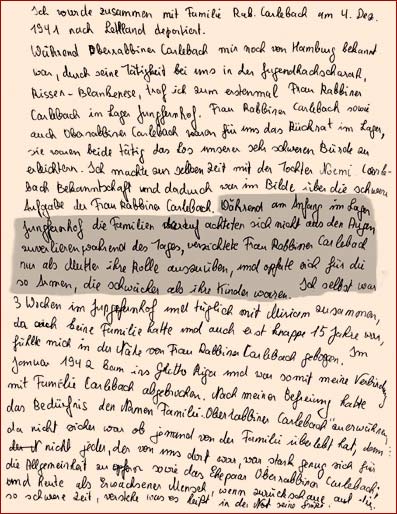 Ich wurde zusammen mit Familie Rab. Carlebach am 4. Dez.
1941 nach Lettland deportiert.
Während Oberrabbiner Carlebach mir noch von Hamburg bekannt
war, durch seine Tätigkeit bei uns in der Jugendhachscharah,
Rissen-Blankenese, traf ich zum erstenmal Frau Rabbiner
Carlebach im Lager Jungfernhof. Frau Rabbiner Carlebach sowie
auch Oberrabbiner Carlebach waren für uns das Rückrat im Lager,
sie waren beide tätig das Los unserer sehr schweren Bürde zu
erleichtern. Ich machte zur selben Zeit mit der Tochter Noemi Carle-
bach Bekanntschaft und dadurch war im Bilde über die schwere
Aufgabe der Frau Rabbiner Carlebach. Während am Anfang im Lager
Jungfernhof die Familien darauf achteten sich nicht aus den Augen
zuverlieren während des Tages, verzichtete Frau Rabbiner Carlebach
nur als Mutter ihre Rolle auszuüben, und opferte sich für die
so Armen, die schwächer als ihre Kinder waren. Ich selbst war
3 Wochen im Jungfernhof und täglich mit Miriam zusammen,
da ich keine Familie hatte und auch erst knappe 15 Jahre war,
fühlte mich in der Nähe von Frau Rabbiner Carlebach geborgen. Im
Januar 1942 kam ins Ghetto Riga und war somit meine Verbindung
mit Familie Carlebach abgebrochen. Nach meiner Befreiung hatte
das Bedürfnis den Namen Familie Oberrabbiner Carlebach zu erwähnen,
da nicht sicher war ob jemand von der Familie überlebt hat, denn
nicht jeder, der von uns dort war, war stark genug sich für
die Allgemeinheit zu opfern sowie das Ehepaar Oberrabbiner Carlebach,
und heute als Erwachsener Mensch, wenn zurückschaue auf die
so schwere Zeit, verstehe was es heißt in der Not sein